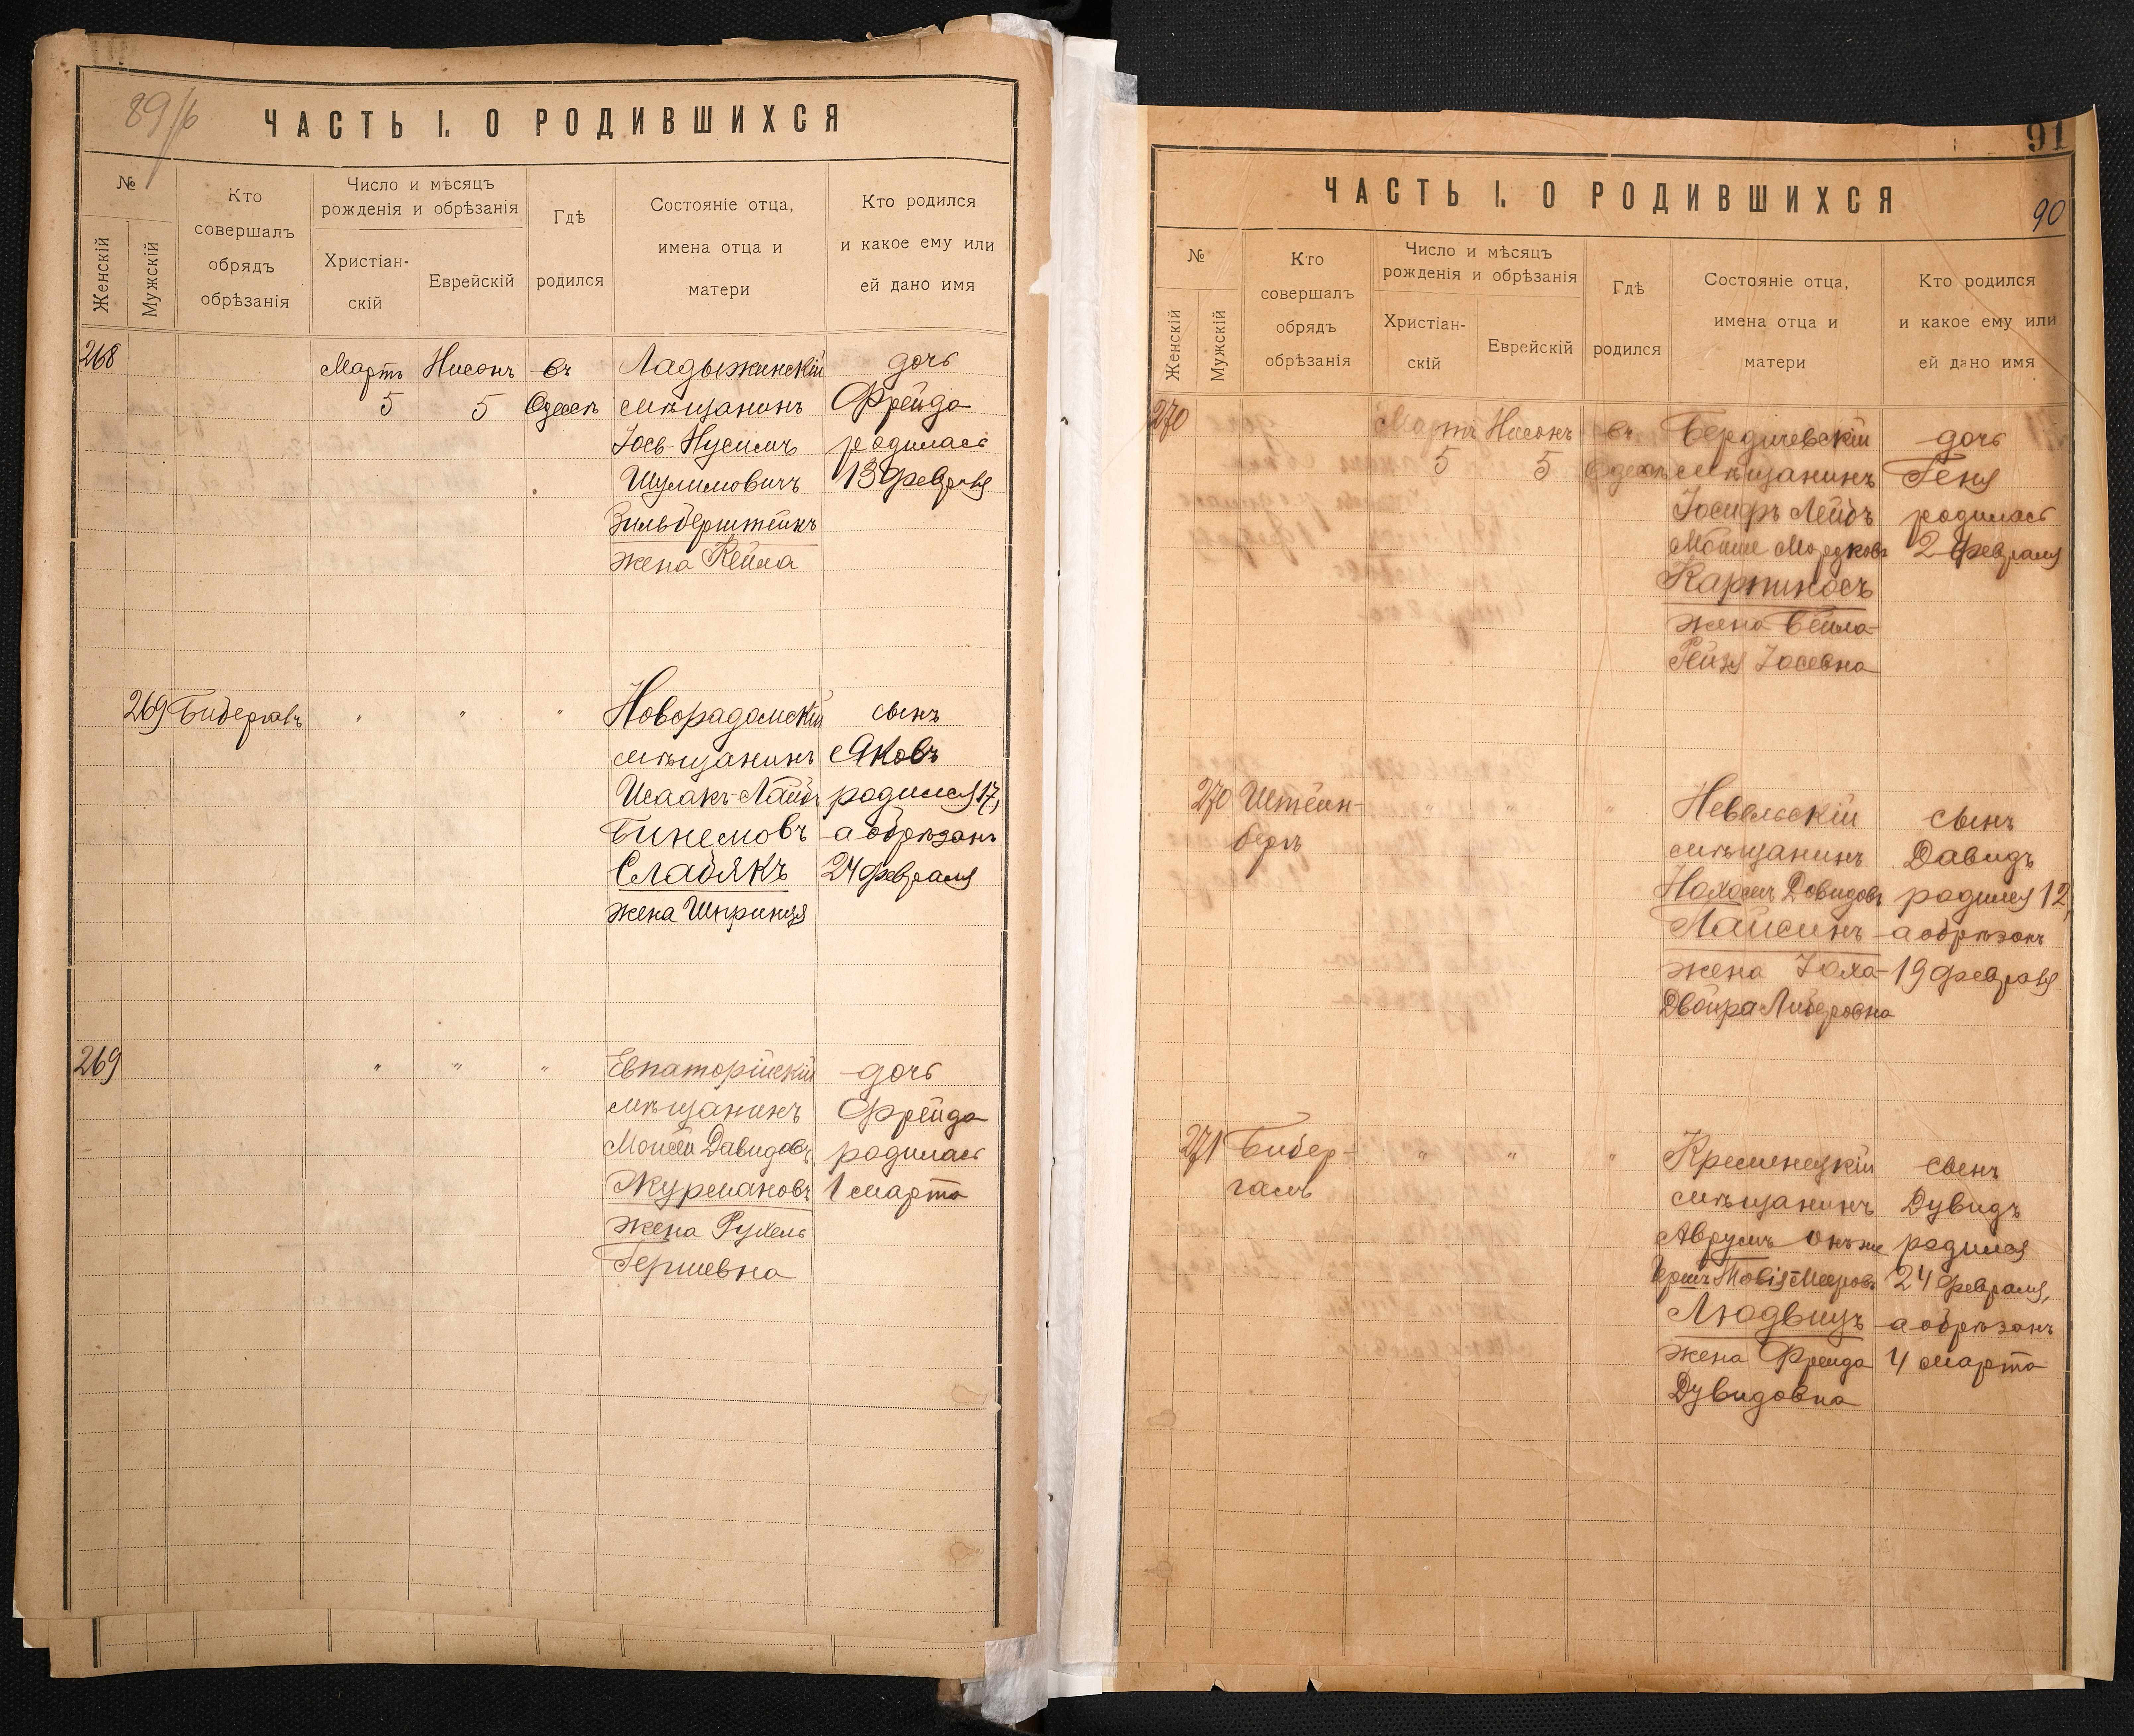 89/б
ЧАСТЬ I. О РОДИВШИХСЯ
№
Женскій
Мужскій
Кто
совершалъ
обрядъ
обрѣзанія
Число и мѣсяцъ
рожденія и обрѣзанія
Христіан-
скій
Еврейскій
Гдѣ
родился
Состояніе отца,
имена отца и
матери
Кто родился
и какое ему или
ей дано имя
268 Мартъ Нисонъ въ Ладыжинскій дочь
5 5 Одессѣ мѣщанинъ Фрейда
Іось-Нусимъ родилась
Шулимовичъ 13 февраля
Зильберштейнъ
жена Кейла
269 " " " Новорадомскій сынъ
мѣщанинъ Яковъ
Исаакъ-Лайбъ родился 17,
Бинемовъ а обрѣзанъ
Слабякъ 24 февраля
жена Шпринця
269 " " " Евпаторійскій дочь
мѣщанинъ Фрейда
Моисей Давидовъ родилась
Журмановъ 1 марта
жена Рухель
Гершевна
91
ЧАСТЬ I. О РОДИВШИХСЯ
90
№
Женскій
Мужскій
Кто
совершалъ
обрядъ
обрѣзанія
Число и мѣсяцъ
рожденія и обрѣзанія
Христіан-
скій
Еврейскій
Гдѣ
родился
Состояніе отца,
имена отца и
матери
Кто родился
и какое ему или
ей дано имя
270 Мартъ Нисонъ въ Бердичевскій дочь
5 5 Одессѣ мѣщанинъ Геня
Іосифъ Лейбъ родилась
Мойше Мордковъ 2 февраля
Карпиносъ
жена Бейла-
Рейзя Іосевна
270 Штейн- " " " Невельскій сынъ
бергъ мѣщанинъ Давидъ
Нохомъ Довидовъ родился 12,
Лайсинъ а обрѣзанъ
жена Іоха- 19 февраля
Двойра Либеровна
271 Бибер- " " " Кременецкій сынъ
галъ мѣщанинъ Дувидъ
Аврумъ онъ же родился
Гершъ Товія Мееровъ 24 февраля,
Людвицъ а обрѣзанъ
жена Фрейда 4 марта
Дувидовна